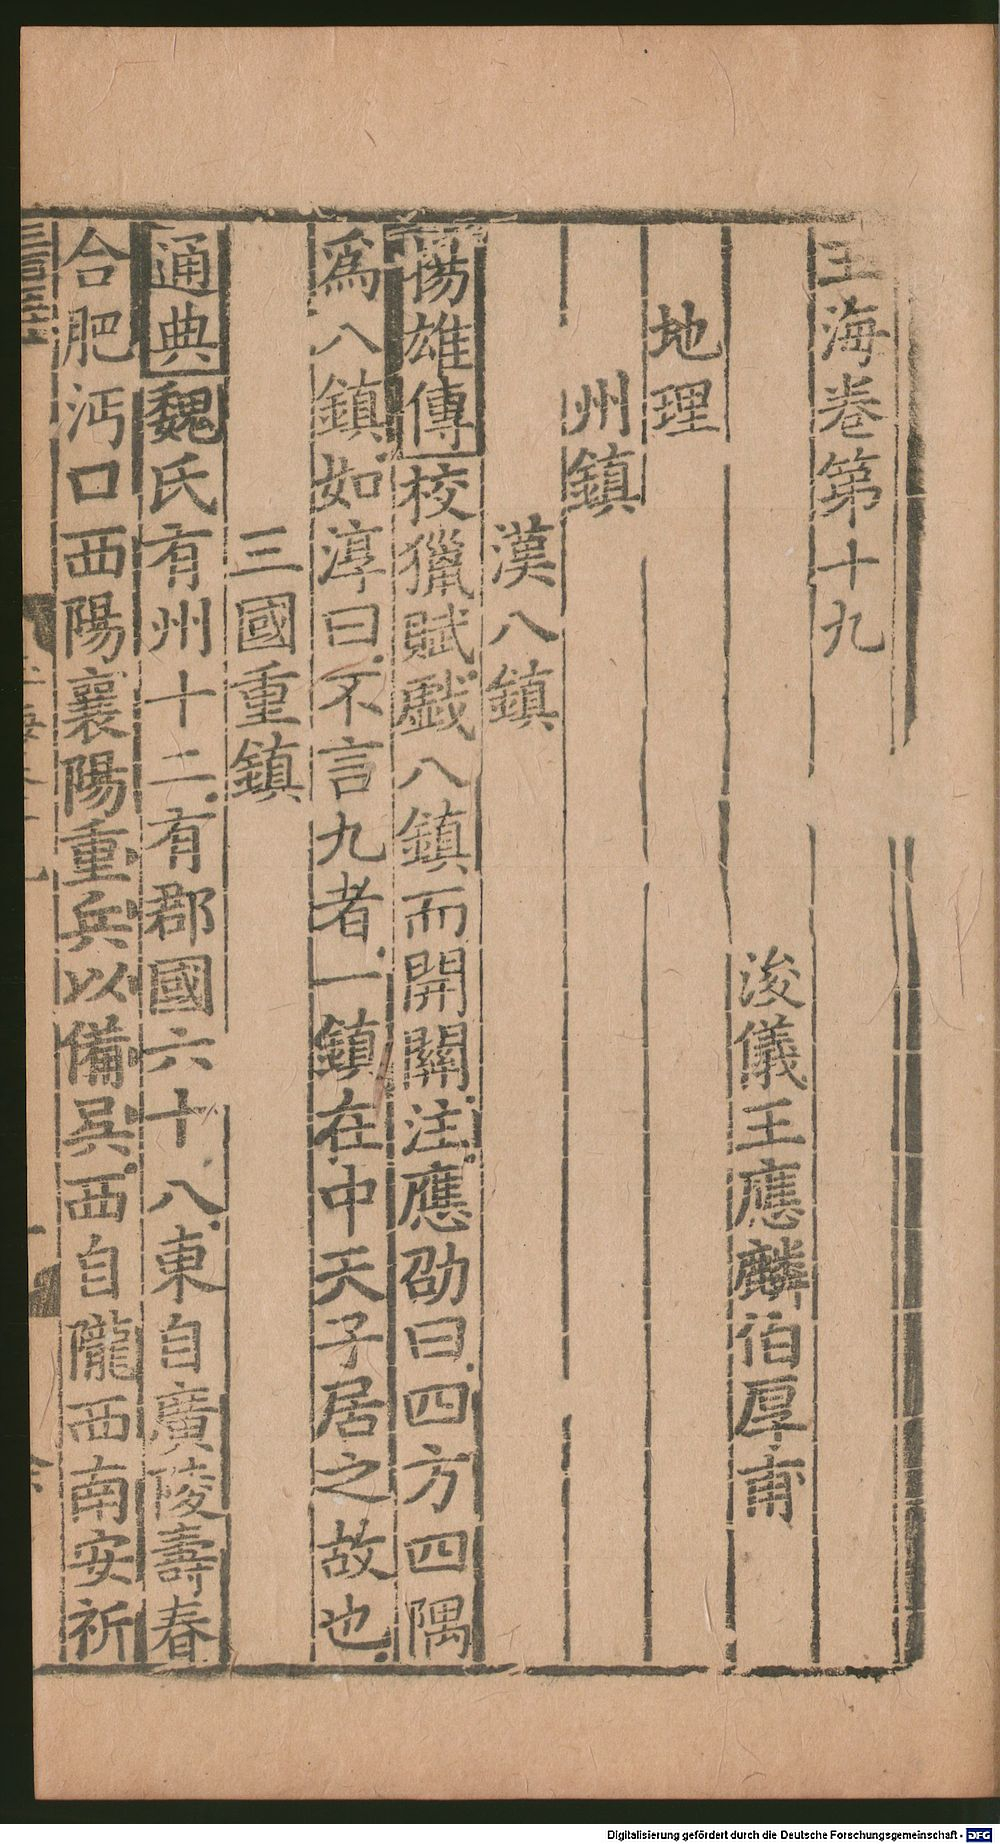 玉海卷第十九
浚儀王應麟伯厚甫
地理
州鎮
漢八鎮
揚雄傳校獵賦戲八鎮而開關注應劭曰四方四隅
爲八鎮如淳曰不言九者一鎮在中天子居之故也
三國重鎮
通典魏氏有州十二有郡國六十八東自廣陵壽春
合肥沔口西陽襄陽重兵以備吳西自隴西南安祈
Digitalisierung gefördert durch die Deutsche Forschungsgemeinschaft - DFG